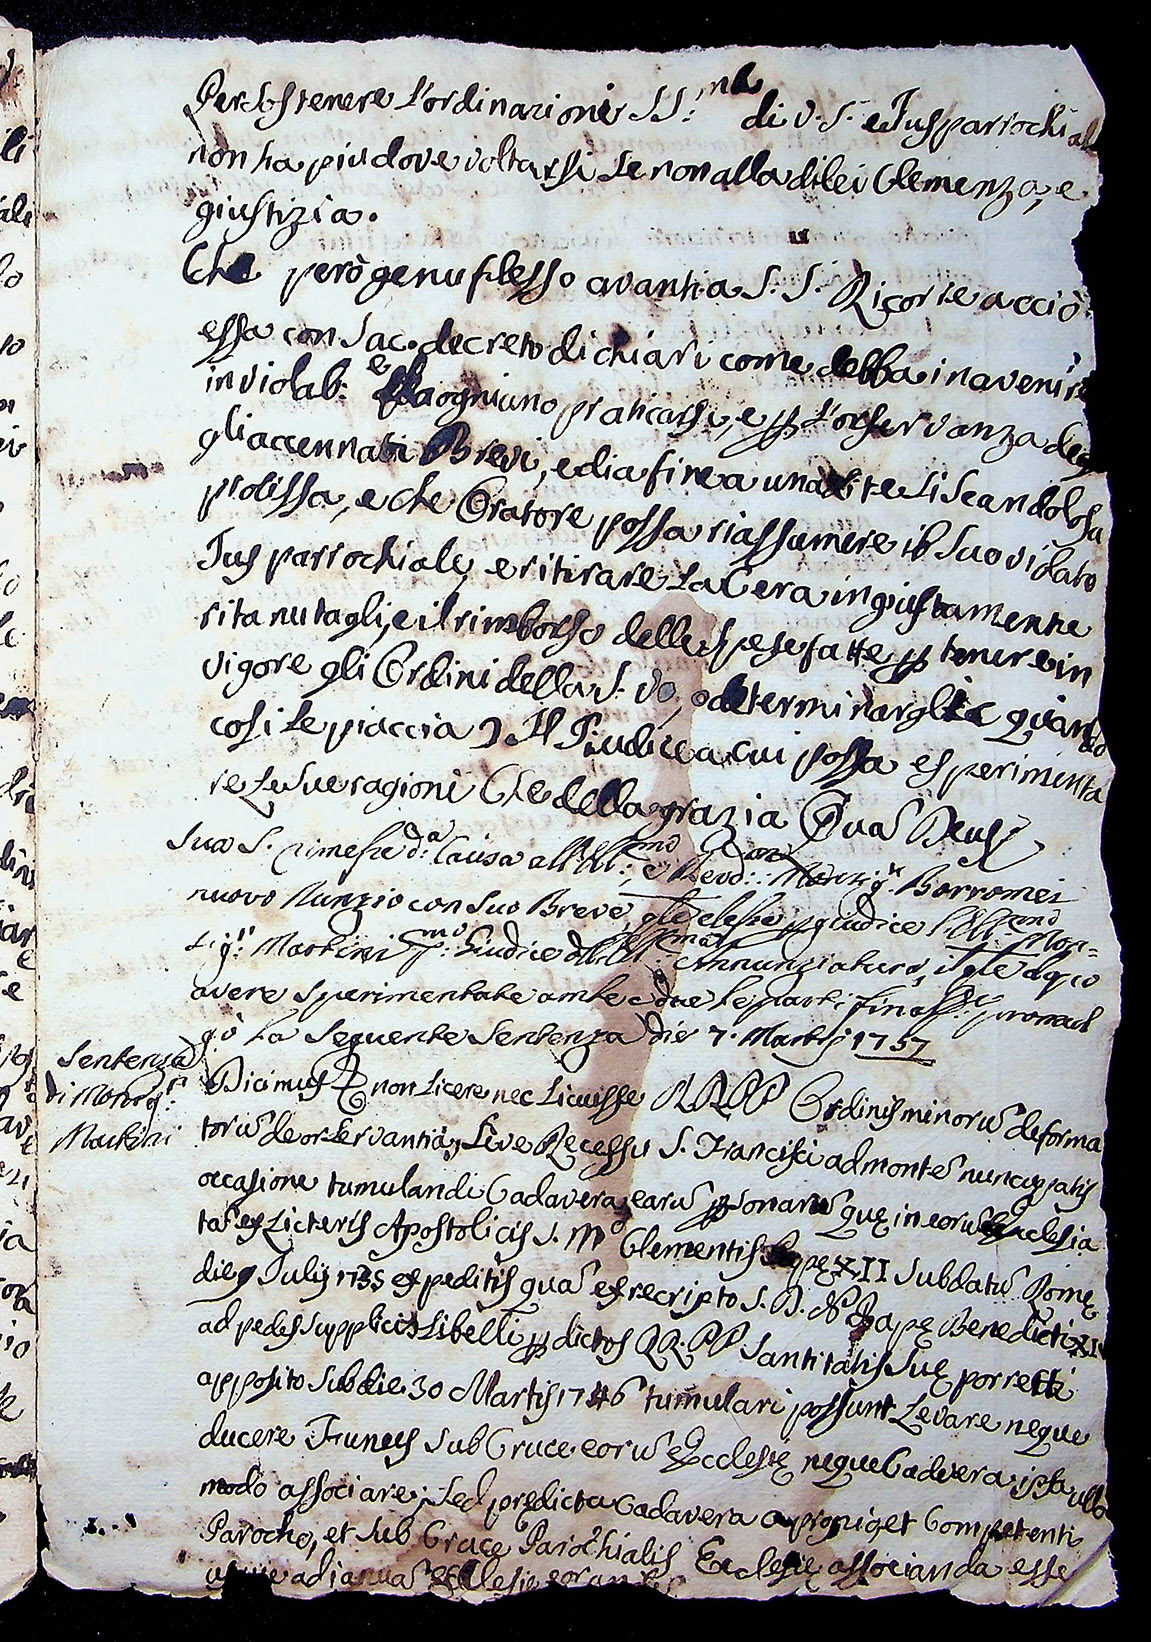 Per sostenere l'ordinazioni SS.me di V. S. e Jus parrochiale
non ha piu dove voltarsi se non alla di lei Clemenza, e
giustizia.
Che però genuflesso avanti a S. S. Ricorre acciò
essa con Sac. decreto dichiari come debba in avenire
inviolab:e da ogniuno praticarsi, e p l'osservanza deg
gli accennati Brevi, e dia fine a una lite si scandolosa
prolissa, e che Oratore possa riassumere il suo violato
Jus parrochiale, e ritirare la Cera ingiustamente
ritanutagli, e il rimborso delle spese fatte p tenere in
vigore gli Ordini della S. Vo, o determinargli quando
cosi le piaccia Il Giudice a cui possa esperimenta
re le sue ragioni Che della grazia Qua Deus
Sua S. rimesse d.a Causa all'Ill.mo, e Revd. Monsig.r Borromei
nuovo Nunzio con suo Breve qle elesse p giudice l'Ill.mo Mon=
sig.r Martini Giudice dell' Annunziatura, il qle dopo
avere sperimentate ambe due le parti final. promul
gò la seguente Sentenza die 7. Martij 1757
Sentenza
di Monsig.r
Martini
Dicimus non licere nec licuisse RRPP Ordinis minorū deforma
torū de observantia, sive Recessu S. Francisci ad montē nuncupatis
occasione tumulandi Cadavera earū psonarū quę in eorū Ecclesia
tā ex Licteris Apostolicis S. M. Clementis Papę XII sub datū Romę
die 9 Julij 1735 expeditis quā ex rescripto S. D. N. Papę Benedicti XIV
ad pedes supplicis Libelli p dictos RR. PP Santitatis Suę porrecti
apposito sub die 30 Martis 1746 tumulari possunt Levare neque
ducere Funus sub Cruce eorū Ecclesię neque Cadvera ipsa ullo
modo associare; sed prędicta Cadavera a proprio et Competenti
Parocho, et sub Cruce Parochialis Ecclesię associanda esse
usque ad januā Ecclesię